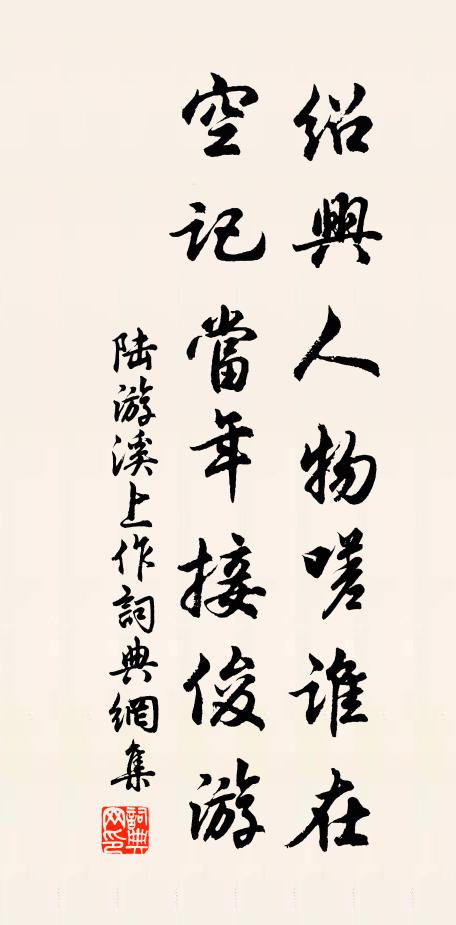 紹興人物嗟誰在
空記當年接俊游
陆游溪上作詞典網集
詞典網印